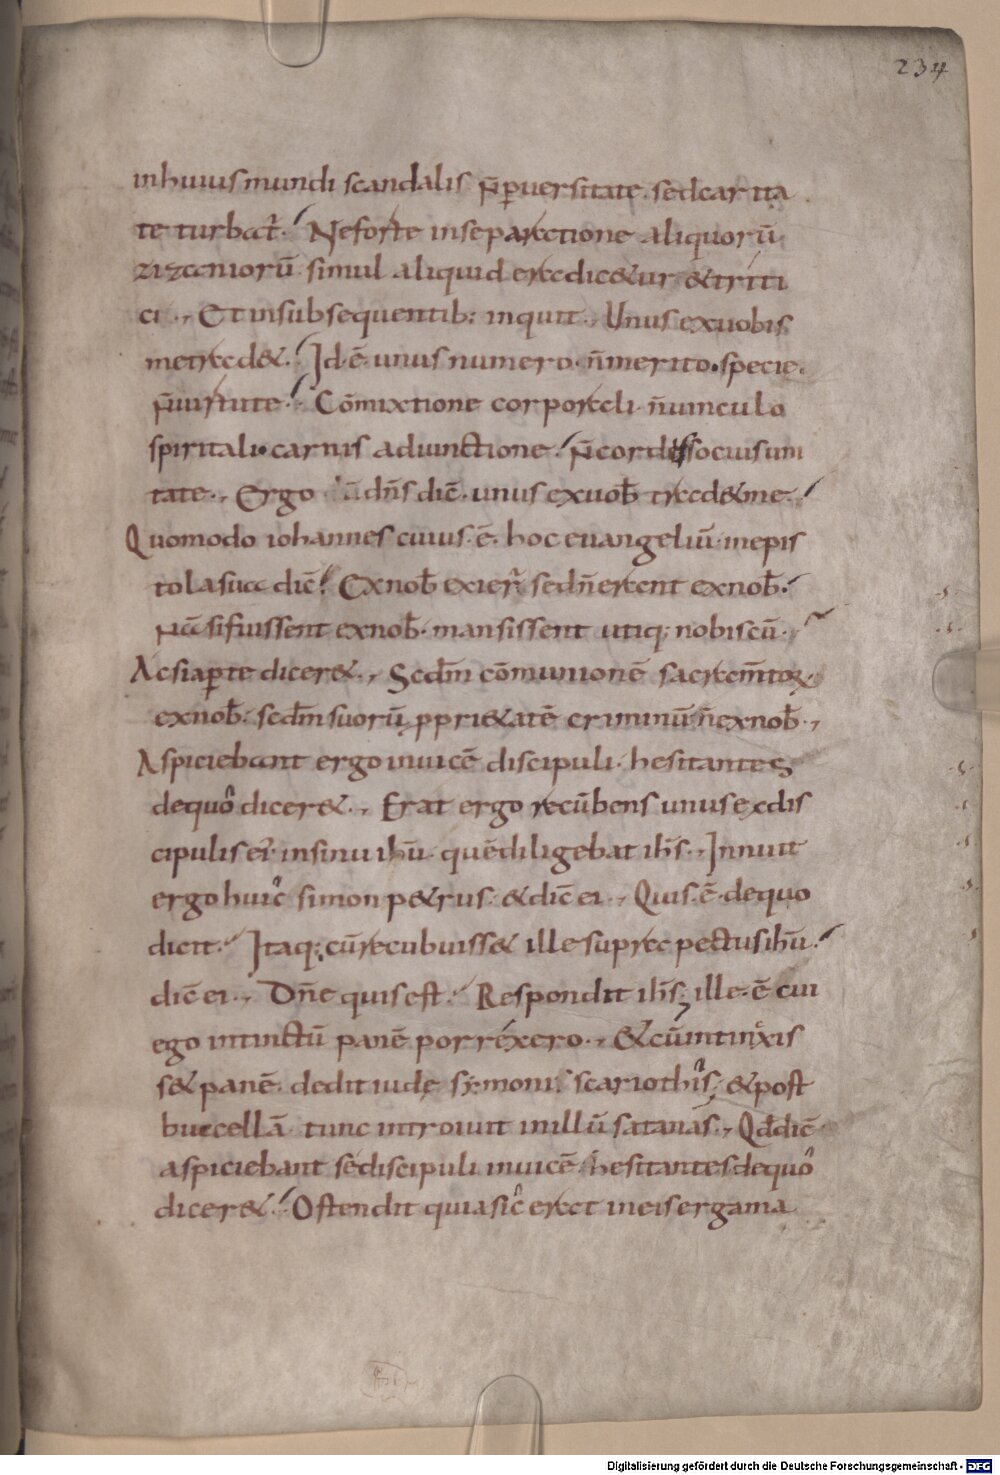 234
inhuius mundi scandalis n̄ p̱uersitate. sedcarita
te turbat᷑. Neforte inseparatione aliquorū
zizaniorū simul aliquid eradicetur & triti
ci., Et insubsequentib; inquit., Unus exuobis
metradet. Id.ē. unus numero. n̄ merito. specie.
n̄ uirtute. Cōmixtione corporali. n̄ uinculo
spiritali. carnis adiunctione. n̄ cordis socius uni
tate., Ergo dn̄s dic̄. unus exuob̄ tradet me.
Quomodo iohannes cuius.ē. hoc euangeliū. inepis
tola sua dic̄. Exnob̄ exier̄. sedn̄ erant exnob̄.
Nā sifuissent exnob̄. mansissent utiq; nobiscū.
Acsiap̱te diceret., Scdm̄ cōmunionē sacram̄toꝝ
exnob̄. scdm̄ suorū pprietatē criminū n̄ exnob̄.,
Aspiciebant ergo inuicē discipuli. hesitantes
dequo diceret., Erat ergo recūbens unus exdis
cipulis ei᷑ insinu ihū. quēdiligebat ihs̄., Innuit
ergo huic simon petrus. & dic̄ ei., Quis.ē. dequo
dicit. Itaq; cū recubuisset ille supra pectus ihū.
dic̄ ei., Dn̄e quis est. Respondit ihs̄; ille.ē cui
ego intinctū panē porréxero., & cū intinxis
set panē. dedit iudę symonis scariothis; & post
buccellā tunc introiuit inillū satanas., Qd̄ dic̄
aspiciebant sediscipuli inuicē hesitantes dequo
diceret. Ostendit quia sic erat ineis ergama
Digitalisierung gefördert durch die Deutsche Forschungsgemeinschaft - DFG